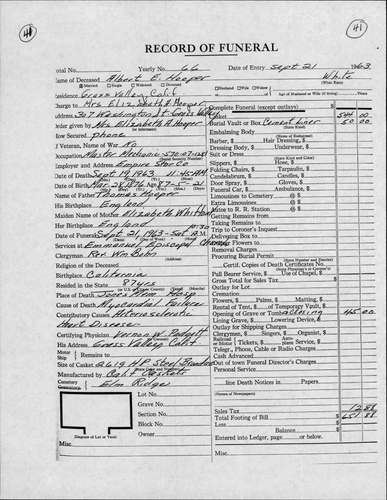 41
41
RECORD OF FUNERAL
Total No. Yearly No. 66 Date of Entry Sept. 21 1963
Name of Deceased Albert E. Hooper White
Married Single Widowed Divorced Husband Wife Widow
(What Race)
Residence Grass Valley, Calif Age of Husband or Wife (if living) Years
Charge to Mrs Elizabeth Hooper Complete Funeral (except outlays) $
Address 307 Washington St Grass Valley Casket 544 00
Order given by Mrs Elizabeth Hooper Burial Vault or Box Cement Liner 50 00
or informant (State Kind)
How Secured phone Embalming Body
(Name of Embalmer)
If Veteran, War No Barber, $ Hair Dressing, $
Occupation Master Mechanic 570-07-1281 Dressing Body, $ Underwear, $
(Social Security Number) Suit or Dress
(State Kind and Color)
Employer and Address Empire Star Co Slippers, $ Hose, $
Date of Death Sept 19, 1963 11:45 A.M. Folding Chairs, $ Tarpaulin, $
Candelabrum, $ Candles, $
Date of Birth Mar. 28 1876 Age 87-5-21 Door Spray, $ Gloves, $
Name of Father Thomas Hooper Funeral Car, $ Ambulance, $
His Birthplace England Limousines to Cemetery @ $
Extra Limousines @ $
Maiden Name of Mother Elizabeth Autos to R. R. Station @ $
Her Birthplace England Getting Remains
10:30 Taking Remains
Date of Funeral Sept 21, 1963 - Sat. A.M. Trip to Coroner's Inquest
Services at Emmanuel Episcopal Church Delivering Box to
Flowers to
Clergyman Rev Wm Removing Remains
Religion of the Deceased Procuring Burial Permit
(State Number and District)
Birthplace California Certified Copies of Death Certificates No.
Resided in the State 87 yrs Pall Bearer Service, $ Use of Chapel, $
Place of Death Jones Mem Hosp Gross Total for Sales Tax $
Outlay for Lot
Cause of Death Myocardial Failure Cremation
Contributory Causes Arteriosclerotic Flowers, $ Palms, $ Matting, $
Heart Disease Rental of Tent, $ of Temporary Vault, $
Opening of Grave or Tomb 45 00
Certifying Physician Vernon W. Padgett Lining Grave, $ Lowering Device, $
Outlay for Shipping Charges
His Address Grass Valley Calif Clergymen, $ Singers, $ Organist, $
Motor Ship Remains to Railroad or Motor Tickets, $ Aeroplane Service, $
Size of Casket 2619 HP Steel Telegr., Phone, Cable or Radio Charges
Cash Advanced
Manufactured by Calif Caskets Out of town Funeral Director's Charges
Cemetery Crematory Elm Ridge Personal Service
Lot No. line Death Notices in Papers.
Grave No. (Names of Newspapers)
Section No. Sales Tax 12 88
Block No. Total Footing of Bill $ 651 88
Less
Owner Balance $
Diagram of Lot or Vault Entered into Ledger, page or below.
Misc. Misc.